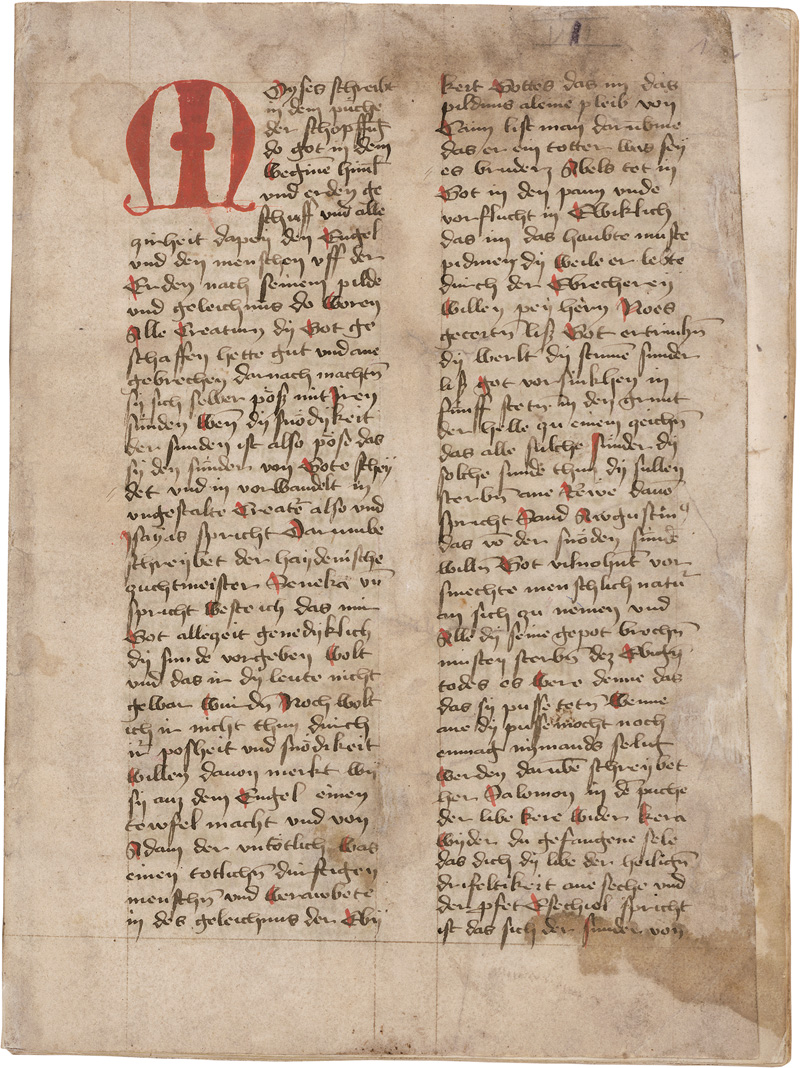 Moyses schreibt
in dem puche
der schopffūg
do got in dem
Begīnē himl
vnd erden ge
schuff vnd alle
girheit dapey den Engel
vnd den menschen vff der
Erden nach seinem pilde
vnd geleichnus do Woren
Alle Creaturn dy Got ge
schaffen hette gut vnd ane
gebrechen darnach machtn̄
sy sich selber pöß mit Jren
sunden Wen̄ dy snödykeit
der sunden ist also pöse das
sy den sünder von Gote schey
det vnd in vorwandelt in
vngestalte Creatē also vnd
Jsayas spricht Darumbe
schreybet der haydenische
zuchtmeister Seneka vn̄
spricht Weste ich das mir
Got allezeit genedyklich
dy sunde vorgeben Wolt
vnd das ir dy leute nicht
gewar Wurdn̄ Noch Wolt
ich ir nicht thun durch
ir posheit vnd snödikeit
Willen dauon merkt wy
sy aus dem Engel einen
tewfel macht vnd von
Adam der vntötlich Was
einen totlichn̄ durftigen
menschn̄ vnd Berawbete
in des geleichnus der Ewi
keit Gottes das im das
pildnus aleine pleib von
Caim list man darūbme
das er ein totter was sey
es bruderz Abels tet in
Got in den pann vnde
vorflucht in Ewiklich
das im das haubte muste
pidmen dy Weile er lebte
durch der Ebrecherey
Willen pey hern Noes
geczeitn̄ liß Got ertrinkn̄
dy werlt dy stume sunder
liß got vorsinkhen in
fünff steten in den grunt
der helle zu einem zeichn̄
das alle sulche sünder dy
solche sunde thun dy sullen
sterbn̄ ane Rewe dauon
spricht Sand Awgustinus
das vō der snöden sunde
willn̄ Got vilnohnt vor
smechte menschlich natur
an sich zu nemen vnd
Alle dy seine gepot brochn̄
musten sterbn̄ dez Ewign̄
todes es were denne das
das sy pusse tetn̄ Wenne
ane dy pusse mocht noch
enmag nymands selig
werden darubē schreybet
her Salomon in dē puche
der libe kere wider kera
wyder du gefangene sele
das dich dy libe der heilign̄
drifeltikeit ane seche vnd
der pfet Esechiel spricht
ist das sich der sunder von